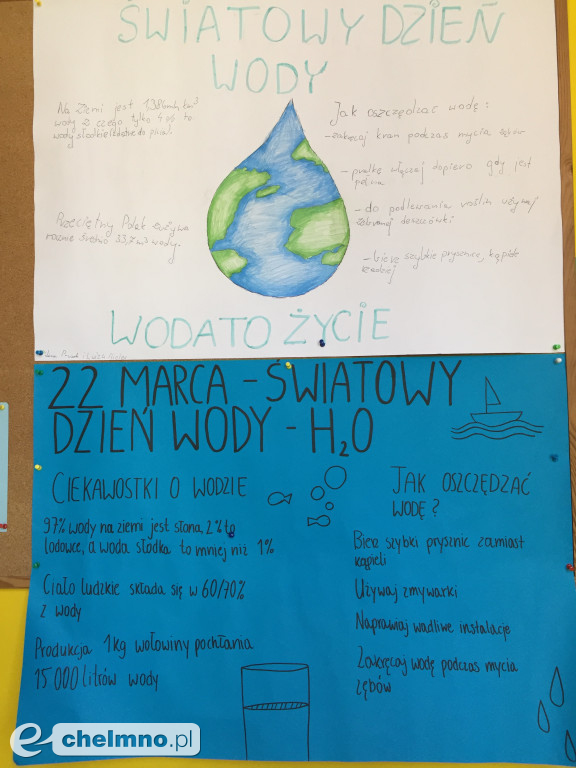 ŚWIATOWY DZIEŃ
WODY
Na Ziemi jest
wody z czego tylko 4% to
wody słodkie
Przeciętny Polak zużywa
rocznie średnio 33,7 m³ wody.
Jak oszczędzać wodę:
- zakręcaj kran podczas mycia zębów
- pralkę włączaj dopiero gdy jest
pełna
- do podlewania roślin używaj
zebranej deszczówki
- bierz szybkie prysznice, kąpiele
rzadziej
WODA TO ŻYCIE
22 MARCA - ŚWIATOWY
DZIEŃ WODY - H₂O
CIEKAWOSTKI O WODZIE
97% wody na ziemi jest słona, 2% to
lodowce, a woda słodka to mniej niż 1%
Ciało ludzkie składa się w 60/70%
z wody
Produkcja 1kg wołowiny pochłania
15 000 litrów wody
JAK OSZCZĘDZAĆ
WODĘ?
Bierz szybki prysznic zamiast
kąpieli
Używaj zmywarki
Naprawiaj wadliwe instalacje
Zakręcaj wodę podczas mycia
zębów
e-chelmno.pl